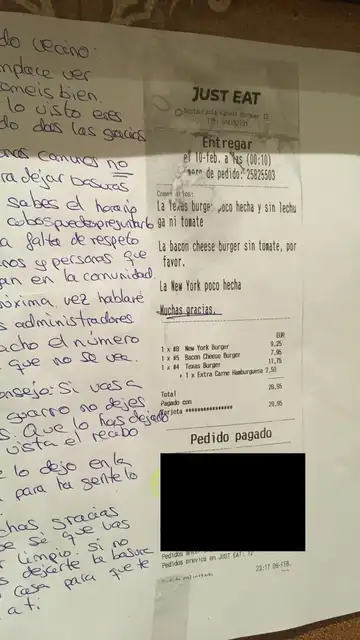 do vecino:
mplace ver
omeis bien.
lo visto eres
do das las gracias
onas comunes no
ra dejar basuras
sabes el horario
cubos puedes preguntarlo
a falta de respeto
nos y personas que
an en la comunidad.
óxima vez hablaré
s administradores
acho el número
que no se vea.
onsejo: Si vas a
guarro no dejes
s. Que lo has dejado
vista el recibo
e lo dejo en la
para que la gente lo
chas gracias
se que vas
limpio. si no
dejarte la basura
casa para que te
a ti
JUST EAT
Entregar
el 10-feb. a las (00:10)
de pedido: 25825503
Comentarios:
La Texas burger poco hecha y sin lechu
ga ni tomate
La bacon cheese burger sin tomate, por
favor.
La New York poco hecha
Muchas gracias.
EUR
1 x #8 New York Burger 9,25
1 x #5 Bacon Cheese Burger 7,95
1 x #4 Texas Burger 11,75
+ 1 x Extra Carne Hamburguesa 2,50
Total 28,95
Pagado con
Tarjeta **************** 28,95
Pedido pagado
Pedidos previos en JUST EAT: 12
23:17 09-FEB.